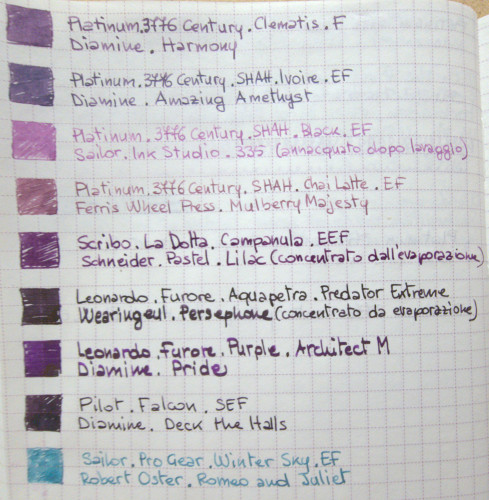 Platinum.3776 Century.Clematis.F
Diamine.Harmony
Platinum.3776 Century.SHAH.Ivoire.EF
Diamine.Amazing Amethyst
Platinum.3776 Century.SHAH.Black.EF
Sailor.Ink Studio.335 (annacquato dopo lavaggio)
Platinum.3776 Century.SHAH.Chai Latte.EF
Ferris Wheel Press.Mulberry Majesty
Scribo.La Dotta.Campanula.EEF
Schneider.Pastel.Lilac (concentrato dall'evaporazione)
Leonardo.Furore.Aquapetra.Predator Extreme
Wearingeul.Persephone (concentrato da evaporazione)
Leonardo.Furore.Purple.Architect M
Diamine.Pride
Pilot.Falcon.SEF
Diamine.Deck the Halls
Sailor.Pro Gear.Winter Sky.EF
Robert Oster.Romeo and Juliet